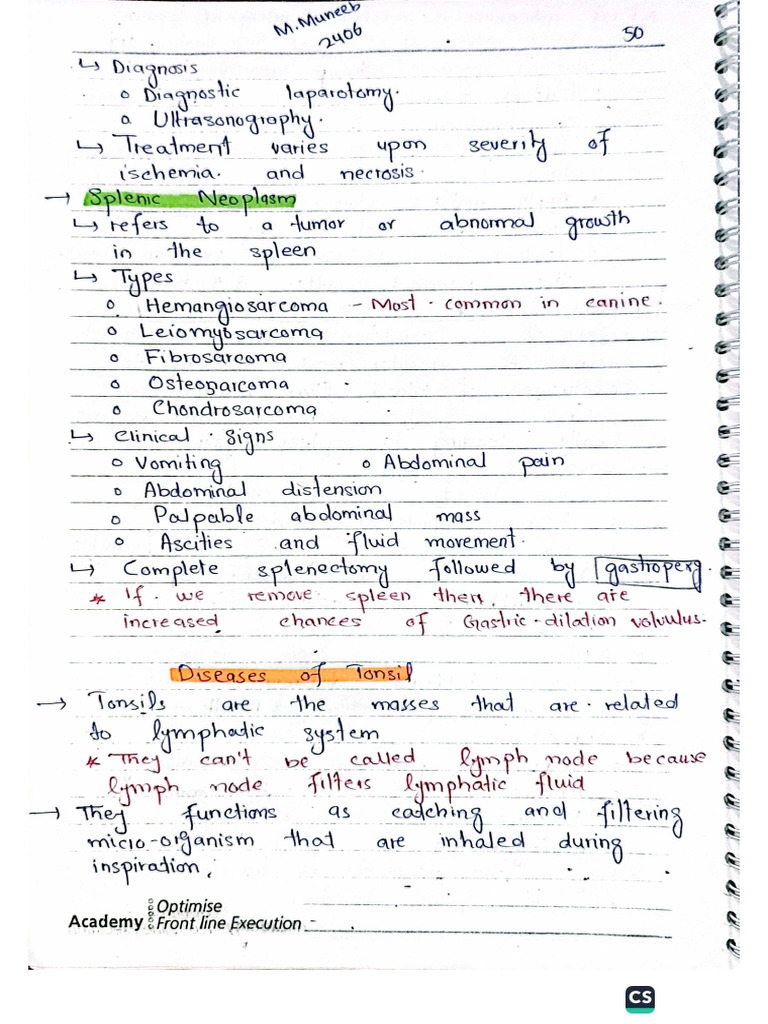 M. Muneeb
2406
50
↳ Diagnosis
o Diagnostic laparotomy.
o Ultrasonography.
↳ Treatment varies upon severity of
ischemia. and necrosis.
→ Splenic Neoplasm
↳ refers to a tumor or abnormal growth
in the spleen
↳ Types
o Hemangiosarcoma - Most common in canine.
o Leiomyosarcoma
o Fibrosarcoma
o Osteosarcoma
o Chondrosarcoma
↳ Clinical signs
o Vomiting o Abdominal pain
o Abdominal distension
o Palpable abdominal mass
o Ascities and fluid movement.
↳ Complete splenectomy followed by gastropexy.
* If we remove spleen then, there are
increased chances of Gastric-dilation volvulus.
Diseases of Tonsil
→ Tonsils are the masses that are related
to lymphatic system
* They can't be called lymph node because
lymph node filters lymphatic fluid
→ They functions as catching and filtering
micro-organism that are inhaled during
inspiration.
Optimise
Academy Front line Execution
CS